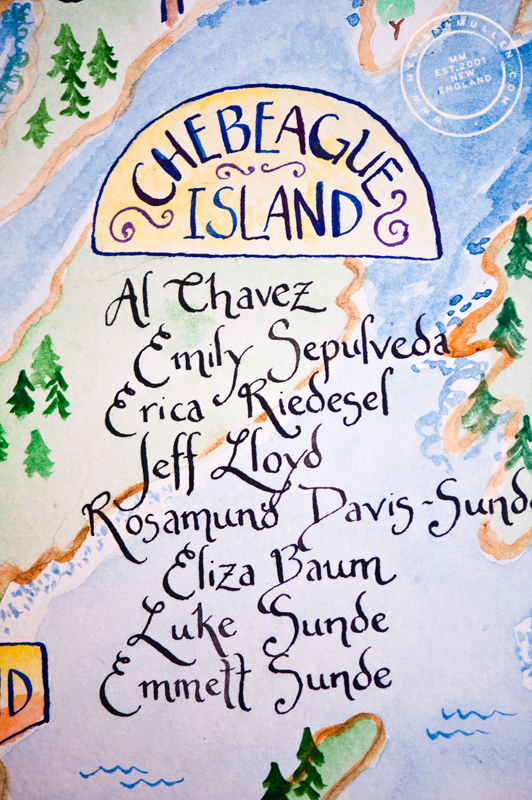 WWW.MELISSAMULLEN.COM
MM
EST. 2001
NEW
ENGLAND
CHEBEAGUE
ISLAND
Al Chavez
Emily Sepulveda
Erica Riedesel
Jeff Lloyd
Rosamund Davis-Sunde
Eliza Baum
Luke Sunde
Emmett Sunde